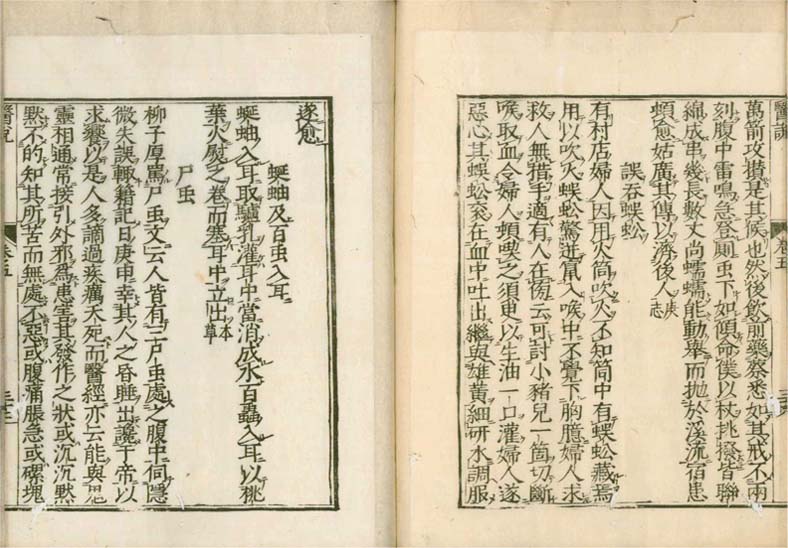 萬箭攻攢是其候也然後飲前藥察悉如其戒不兩
刻腹中雷鳴急登厠虫下如傾命僕以杖挑撥皆聯
綿成串幾長數丈尚蠕蠕能動舉而抛於溪流宿患
頓愈姑廣其傳以濟後人庚志
誤吞蜈蚣
有村店婦人因用火筒吹火不知筒中有蜈蚣藏焉
用以吹火蜈蚣驚迸竄入喉中不覺下胸臆婦人求
救人無措手適有人在傍云可討小豬兒一箇切斷
喉取血令婦人頓喫之須臾以生油一口灌婦人遂
惡心其蜈蚣衮在血中吐出繼與雄黃細研水調服
遂愈
蜒蚰及百虫入耳
蜒蚰入耳取驢乳灌耳中當消成水百蟲入耳以桃
葉火熨之卷而塞耳中立出本草
尸虫
柳子厚罵尸虫文云人皆有三尸虫處之腹中伺隱
微失誤輒籍記日庚申幸其人之昏睡出讒于帝以
求饗以是人多謫過疾癘夭死而醫經亦云能與鬼
靈相通常接引外邪為患害其發作之狀或沉沉默
默不的知其所苦而無處不惡或腹痛脹急或磥塊
醫說
卷五